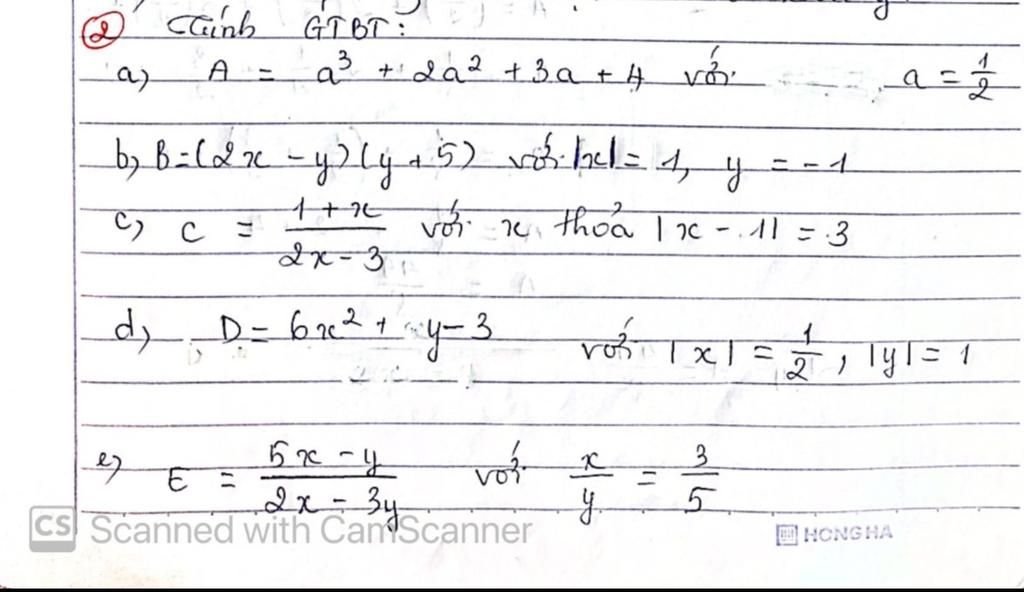 ② Tính GTBT:
a, A = a³ + 2a² + 3a + 4 với a = 1/2
b, B=(2x - y)(y + 5) với |x| = 1, y = -1
c, C = (1 + x)/(2x - 3) với x thỏa |x - 1| = 3
d, D = 6x² + y - 3 với |x| = 1/2, |y| = 1
e, E = (5x - y)/(2x - 3y) với x/y = 3/5
CS Scanned with CamScanner
HONG HA